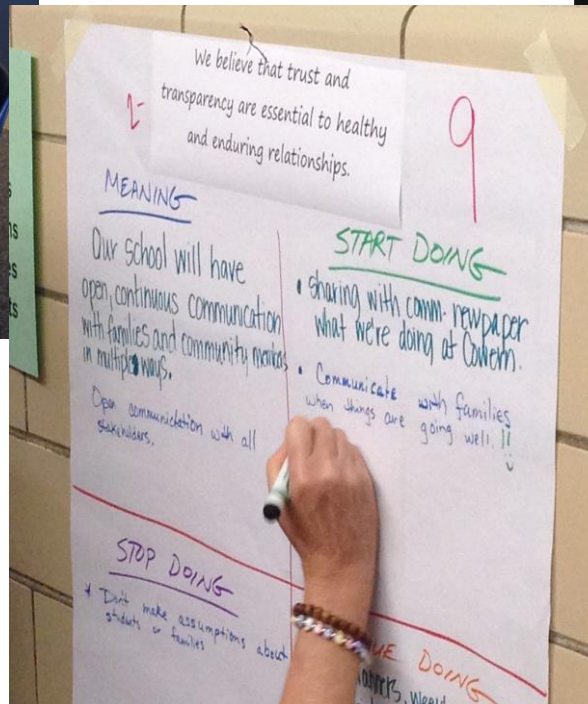 We believe that trust and
transparency are essential to healthy
and enduring relationships.
2-
9
MEANING
Our school will have
open, continuous communication
with families and community members
in multiple ways.
Open communication with all
stakeholders.
START DOING
• sharing with comm. newpaper
what we're doing at Cowern.
• Communicate with families
when things are going well. !!
STOP DOING
* Don't make assumptions about
students or families
UE DOING